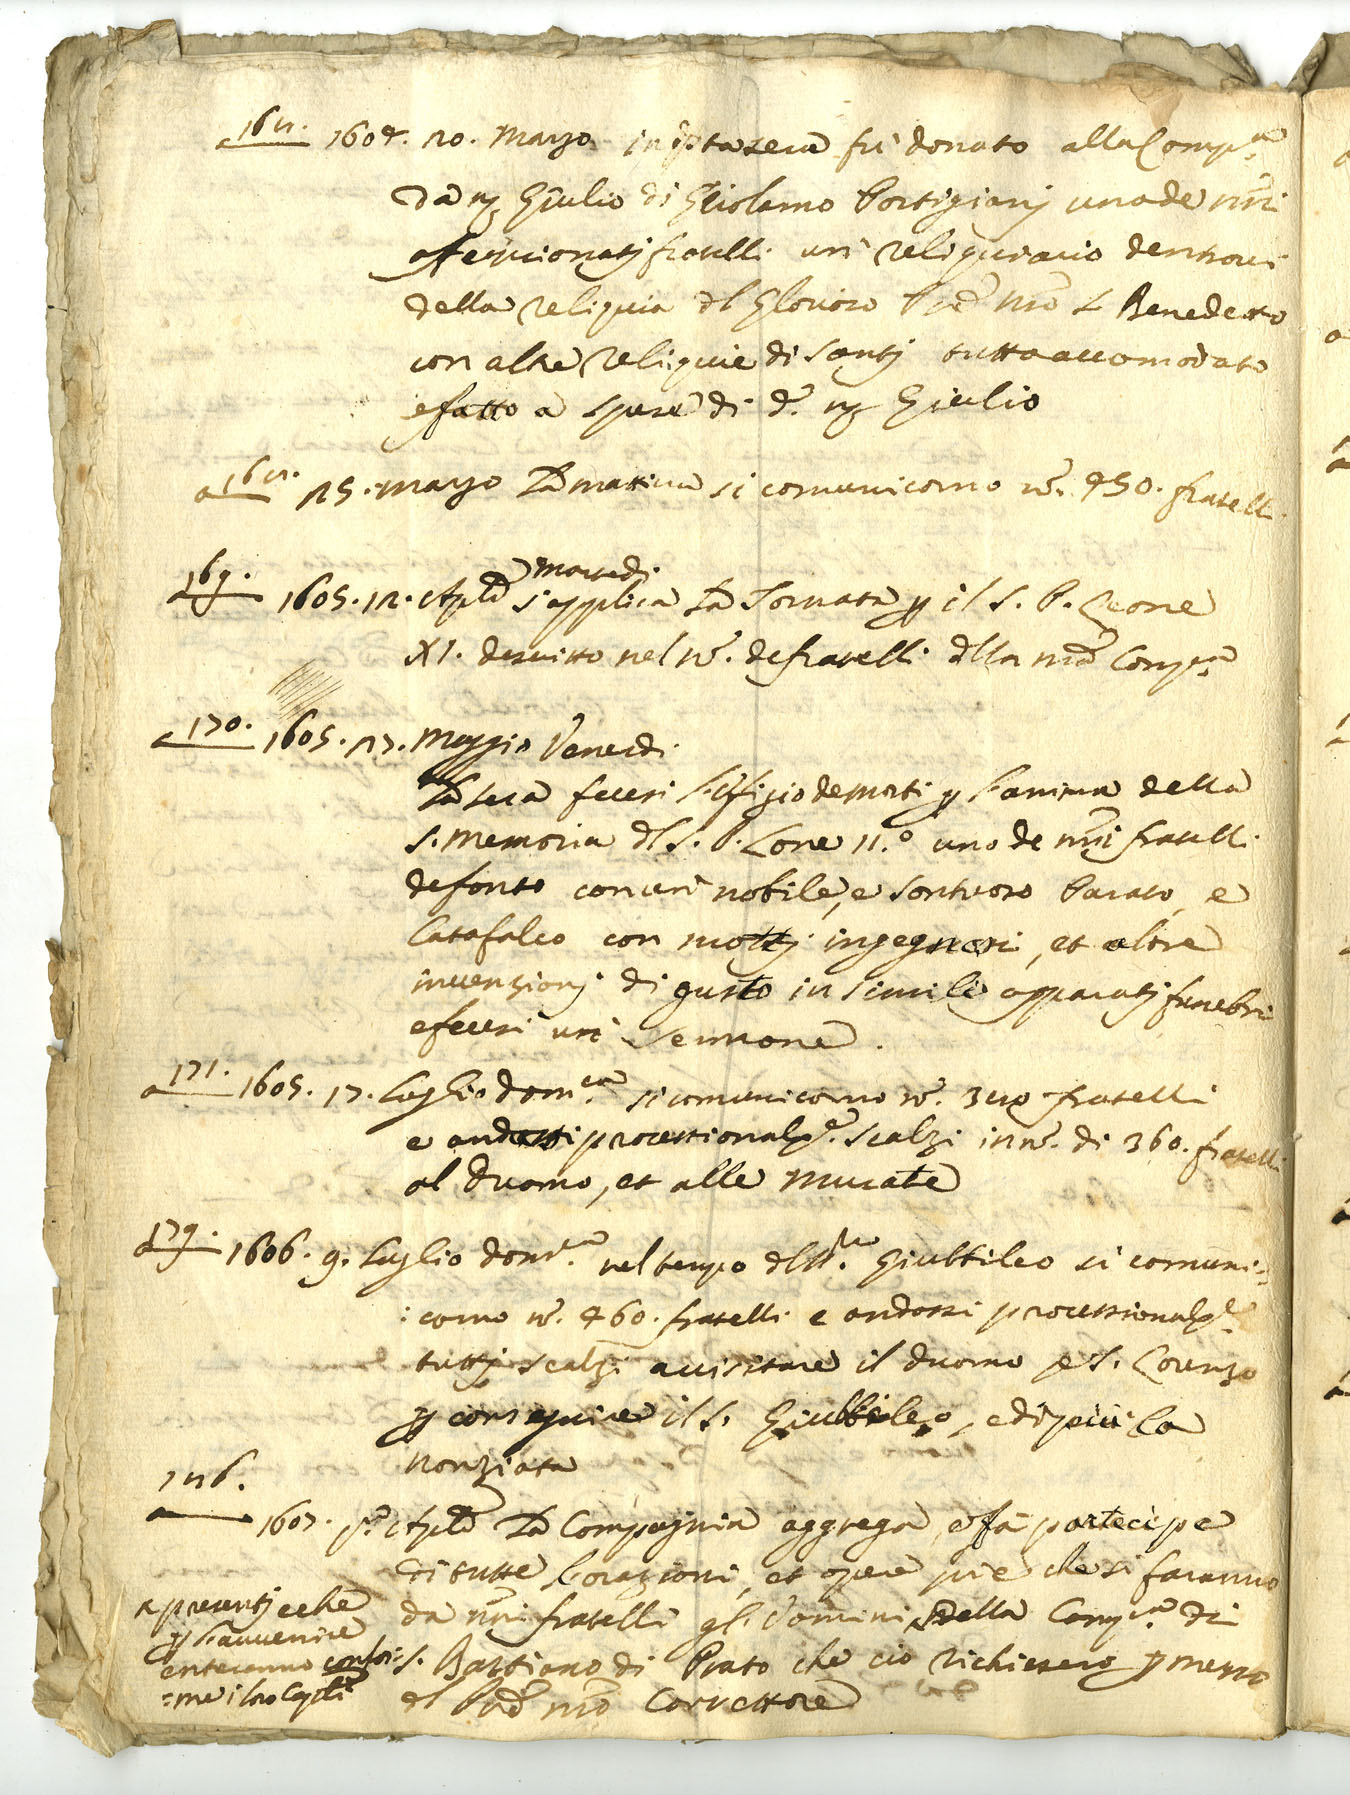 a 162. 1604. 20. Marzo in q.ta sera fù donato alla Comp.a
Da m Giulio di Girolamo Portigianj uno de nri
affezzionatj fratelli un reliquiario dentrovi
della reliquia dl Glorioso Pre nro S. Benedetto
con altre reliquie di Santj tutto accomodato
e fatto a spese di d.o m Giulio
a 162. 25. Marzo La mattina si comunicorno n.o 450. fratelli
a 169. 1605. 12. Aple Martedi s'applica La Tornata p il S. P. Leone
XI. descritto nel n.o de fratelli dlla nra Comp.a
a 170. 1605. 27. Maggio Venerdi
La sera fecesi l'ufizio de morti p l'anima della
S. Memoria dl S. P. Leone 11.o uno de nri fratelli
defonto con un nobile, e sontuoso Parato, e
Catafalco con mottj ingegnosi, et altre
invenzionj di gusto in simili apparatj funebri
e fecesi un Sermone.
a 171. 1605. 17. Luglio dom.ca si comunicorno n.o fratelli
e andossi processionalm.e scalzi in n.o di 360. fratelli
al Duomo, et alle Murate
a 179. 1606. 9. Luglio dom.ca nel tempo dl Giubbileo si comuni=
:corno n.o 460. fratelli e andossi processionalm.e
tuttj scalzi a visitare il Duomo e S. Lorenzo
p conseguire il S. Giubbileo, e di più la
Nonziata
a 186. 1607. p.o Aple La Compagnia aggrega, e fà partecipe
di tutte l'orazioni, et opere pie che si faranno
da nri fratelli gl'Vomini della Comp.a di
S. Bastiano di Prato che ciò richiesero p mezzo
dl Pre nro Correttore
a presentj e che
p l'avvenire
enteranno confor:
=me i loro Capli